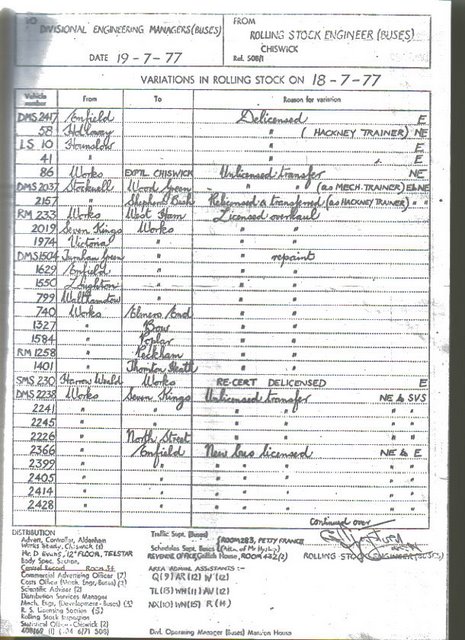 TO DIVISIONAL ENGINEERING MANAGERS (BUSES)
DATE 19-7-77
FROM
ROLLING STOCK ENGINEER (BUSES)
CHISWICK
Ref. 508/1
VARIATIONS IN ROLLING STOCK ON 18-7-77
Vehicle number From To Reason for variation
DMS 2417 Enfield Delicensed E
58 Holloway " (HACKNEY TRAINER) NE
LS 10 Hounslow " E
41 " " E
86 Works EXPTL CHISWICK Unlicensed transfer NE
DMS 2037 Stockwell Wood Green " " (as MECH. TRAINER) E & NE
2157 " Shepherds Bush Relicensed & transferred (as HACKNEY TRAINER) " "
RM 233 Works West Ham Licensed overhaul
2019 Seven Kings Works " "
1974 Victoria " " "
DMS 1504 Turnham Green " " repaint
1629 Enfield " " "
1550 Loughton " " "
799 Walthamstow " " "
740 Works Elmers End " "
1327 " Bow " "
1584 " Poplar " "
RM 1258 " Peckham " "
1401 " Thornton Heath " "
SMS 230 Harrow Weald Works RE-CERT DELICENSED E
DMS 2238 Works Seven Kings Unlicensed transfer NE to SVS
2241 " " " " " "
2245 " " " " " "
2226 " North Street " " " "
2366 " Enfield New bus licensed NE to E
2399 " " " " " " "
2405 " " " " " " "
2414 " " " " " " "
2428 " " " " " " "
Continued over
ROLLING STOCK ENGINEER (BUSES)
DISTRIBUTION
Adven. Controller, Aldenham
Works Supply, Chiswick
Mr. D Evans, 12th FLOOR, TELSTAR
Body Spec. Section,
ROOM 34
Commercial Advertising Officer (7)
Costs Office (Mech. Engr, Buses) (2)
Scientific Adviser (2)
Distribution Services Manager
Mech. Engr, (Development - Buses) (3)
R. S. Licensing Section (5)
Rolling Stock Inspection
Statistical Officer - Chiswick (2)
Traffic Supt. (Buses)
Schedules Supt. Buses
(ROOM 283, PETTY FRANCE
REVENUE OFFICE, Griffith House, ROOM 432 (2)
AREA ADMIN. ASSISTANTS :-
Q (9) AR (12) W (12)
TL (13) WH (11) AV (12)
NX (10) WN (15) R (14)
Divl. Operating Manager (Buses) Mansion House